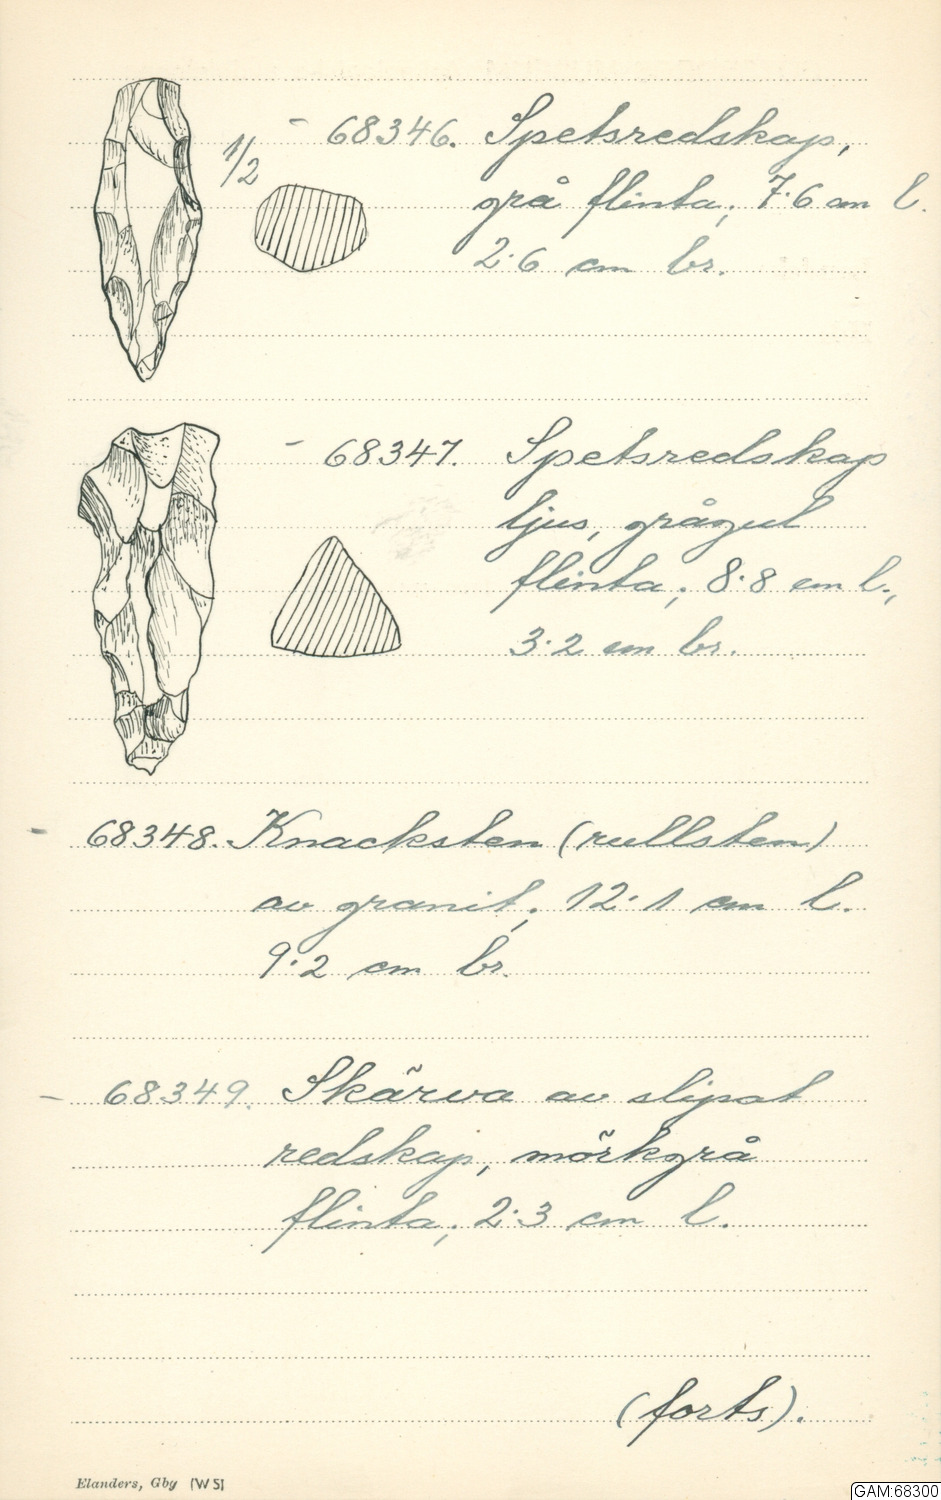 1/2
- 68346. Spetsredskap,
grå flinta; 7·6 cm l.
2·6 cm br.
- 68347. Spetsredskap
ljus, grågul
flinta; 8·8 cm l.,
3·2 cm br.
- 68348. Knacksten (rullsten)
av granit; 12·1 cm l.
9·2 cm br.
- 68349. Skärva av slipat
redskap, mörkgrå
flinta; 2·3 cm l.
(forts).
Elanders, Gby (WS)
GAM:68300